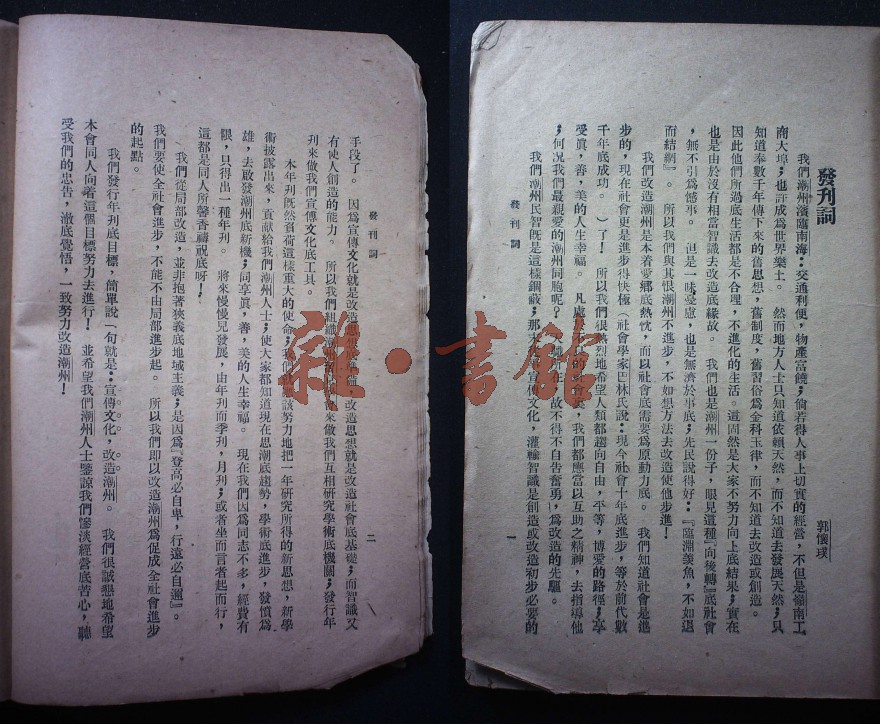 發刊詞
郭懷璞
我們潮州濱臨南海；交通利便，物產富饒；倘若得人事上切實的經營，不但是嶺南工
商大埠；也許成爲世界樂土。 然而地方人士只知道依賴天然，而不知道去發展天然；只
知道奉數千年傳下來的舊思想，舊制度，舊習俗爲金科玉律，而不知道去改造或創造。
因此他們所過底生活都是不合理，不進化的生活。這固然是大家不努力向上底結果；實在
也是由於沒有相當智識去改造底緣故。 我們也是潮州一份子，眼見這種『向後轉』底社會
，無不引爲憾事。 但是一味憂慮，也是無濟於事底；先民說得好：『臨淵羨魚，不如退
而結網』。所以我們與其恨潮州不進步，不如想方法去改造使他步進！
我們改造潮州是本着愛鄉底熱忱，而以社會底需要爲原動力底。 我們知道社會是進
步的，現在社會更是進步得快極（社會學家巴林氏說：現今社會十年底進步，等於前代數
千年底成功。）了！ 所以我們很熱烈地希望人類都趨向自由，平等，博愛的路徑；享
受眞，善，美的人生幸福。 凡處於不良的社會裏，我們都應當以互助之精神，去指導他
；何況我們最親愛的潮州同胞呢？ 所在，故不得不自告奮勇，爲改造的先驅。
我們潮州民智旣是這樣錮蔽；那末先宣傳文化，灌輸智識是創造或改造初步必要的
發刊詞
一
手段了。 因爲宣傳文化就是改造思想底，改造思想就是改造社會底基礎；而智識又
有使人創造的能力。 所以我們組織來做我們互相研究學術底機關；發行年
刊來做我們宣傳文化底工具。
本年刊旣然負荷這樣重大的使命；我們就應該努力地把一年研究所得的新思想，新學
術披露出來，貢獻給我們潮州人士；使大家都知道現在思潮底趨勢，學術底進步，發憤爲
雄，去啟發潮州底新機；同享眞，善，美的人生幸福。 現在我們因爲同志不多，經費有
限，只得出一種年刊。 將來慢慢兒發展，由年刊而季刊，月刊；或者坐而言者起而行，
這都是同人所馨香禱祝底呀！
我們從局部改造，並非抱著狹義底地域主義；是因爲『登高必自卑，行遠必自邇』。
我們要使全社會進步，不能不由局部進步起。 所以我們即以改造潮州爲促成全社會進步
的起點。
我們發行年刊底目標，簡單說一句就是：宣傳文化，改造潮州。 我們很誠懇地希望
本會同人向着這個目標努力去進行！ 並希望我們潮州人士鑒諒我們慘淡經營底苦心，聽
受我們的忠告，澈底覺悟，一致努力改造潮州！
發刊詞
二
雜·書館